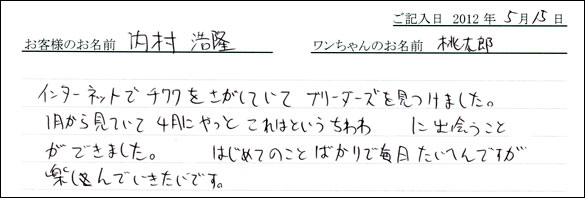 ご記入日 2012年5月15日
お客様のお名前 内村 浩隆 ワンちゃんのお名前 桃太郎
インターネットでチワワをさがしていて ブリーダーズを見つけました。
1月から見ていて 4月にやっと これはというちわわ に出会うこと
ができました。 はじめてのことばかりで毎日たいへんですが
楽しんでいきたいです。